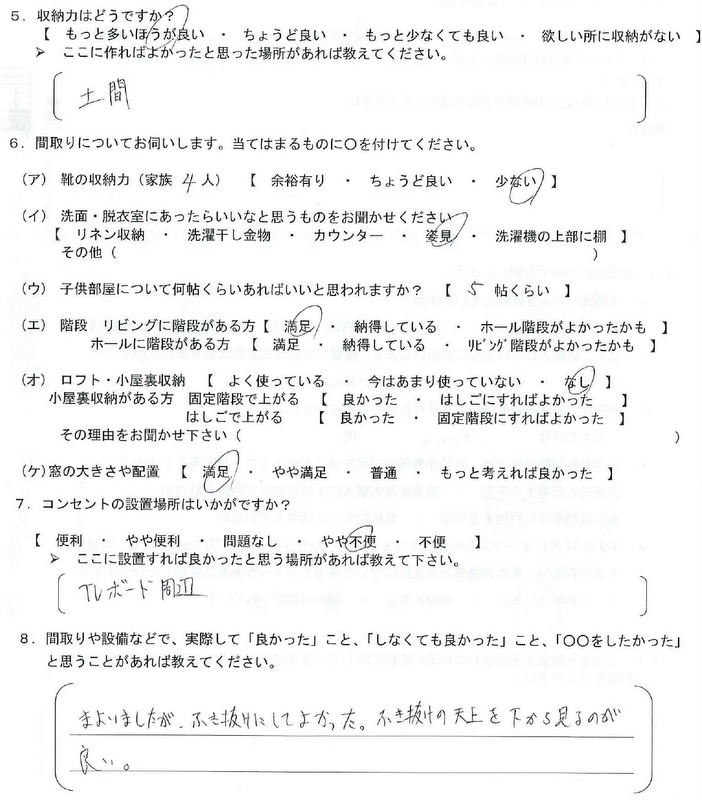 ５．収納力はどうですか？
【 もっと多いほうが良い ・ ちょうど良い ・ もっと少なくても良い ・ 欲しい所に収納がない 】
➢ ここに作ればよかったと思った場所があれば教えてください。
土間
６．間取りについてお伺いします。当てはまるものに〇を付けてください。
（ア） 靴の収納力（家族 4 人） 【 余裕有り ・ ちょうど良い ・ 少ない 】
（イ） 洗面・脱衣室にあったらいいなと思うものをお聞かせください
【 リネン収納 ・ 洗濯干し金物 ・ カウンター ・ 姿見 ・ 洗濯機の上部に棚 】
その他（ ）
（ウ） 子供部屋について何帖くらいあればいいと思われますか？ 【 5 帖くらい 】
（エ） 階段 リビングに階段がある方【 満足 ・ 納得している ・ ホール階段がよかったかも 】
ホールに階段がある方 【 満足 ・ 納得している ・ ﾘﾋﾞﾝｸﾞ階段がよかったかも 】
（オ） ロフト・小屋裏収納 【 よく使っている ・ 今はあまり使っていない ・ なし 】
小屋裏収納がある方 固定階段で上がる 【 良かった ・ はしごにすればよかった 】
はしごで上がる 【 良かった ・ 固定階段にすればよかった 】
その理由をお聞かせ下さい（ ）
（ケ）窓の大きさや配置 【 満足 ・ やや満足 ・ 普通 ・ もっと考えれば良かった 】
７．コンセントの設置場所はいかがですか？
【 便利 ・ やや便利 ・ 問題なし ・ やや不便 ・ 不便 】
➢ ここに設置すれば良かったと思う場所があれば教えて下さい。
TVボード周辺
８．間取りや設備などで、実際して「良かった」こと、「しなくても良かった」こと、「〇〇をしたかった」
と思うことがあれば教えてください。
まよいましたが、ふき抜けにしてよかった。ふき抜けの天上を下から見るのが
良い。